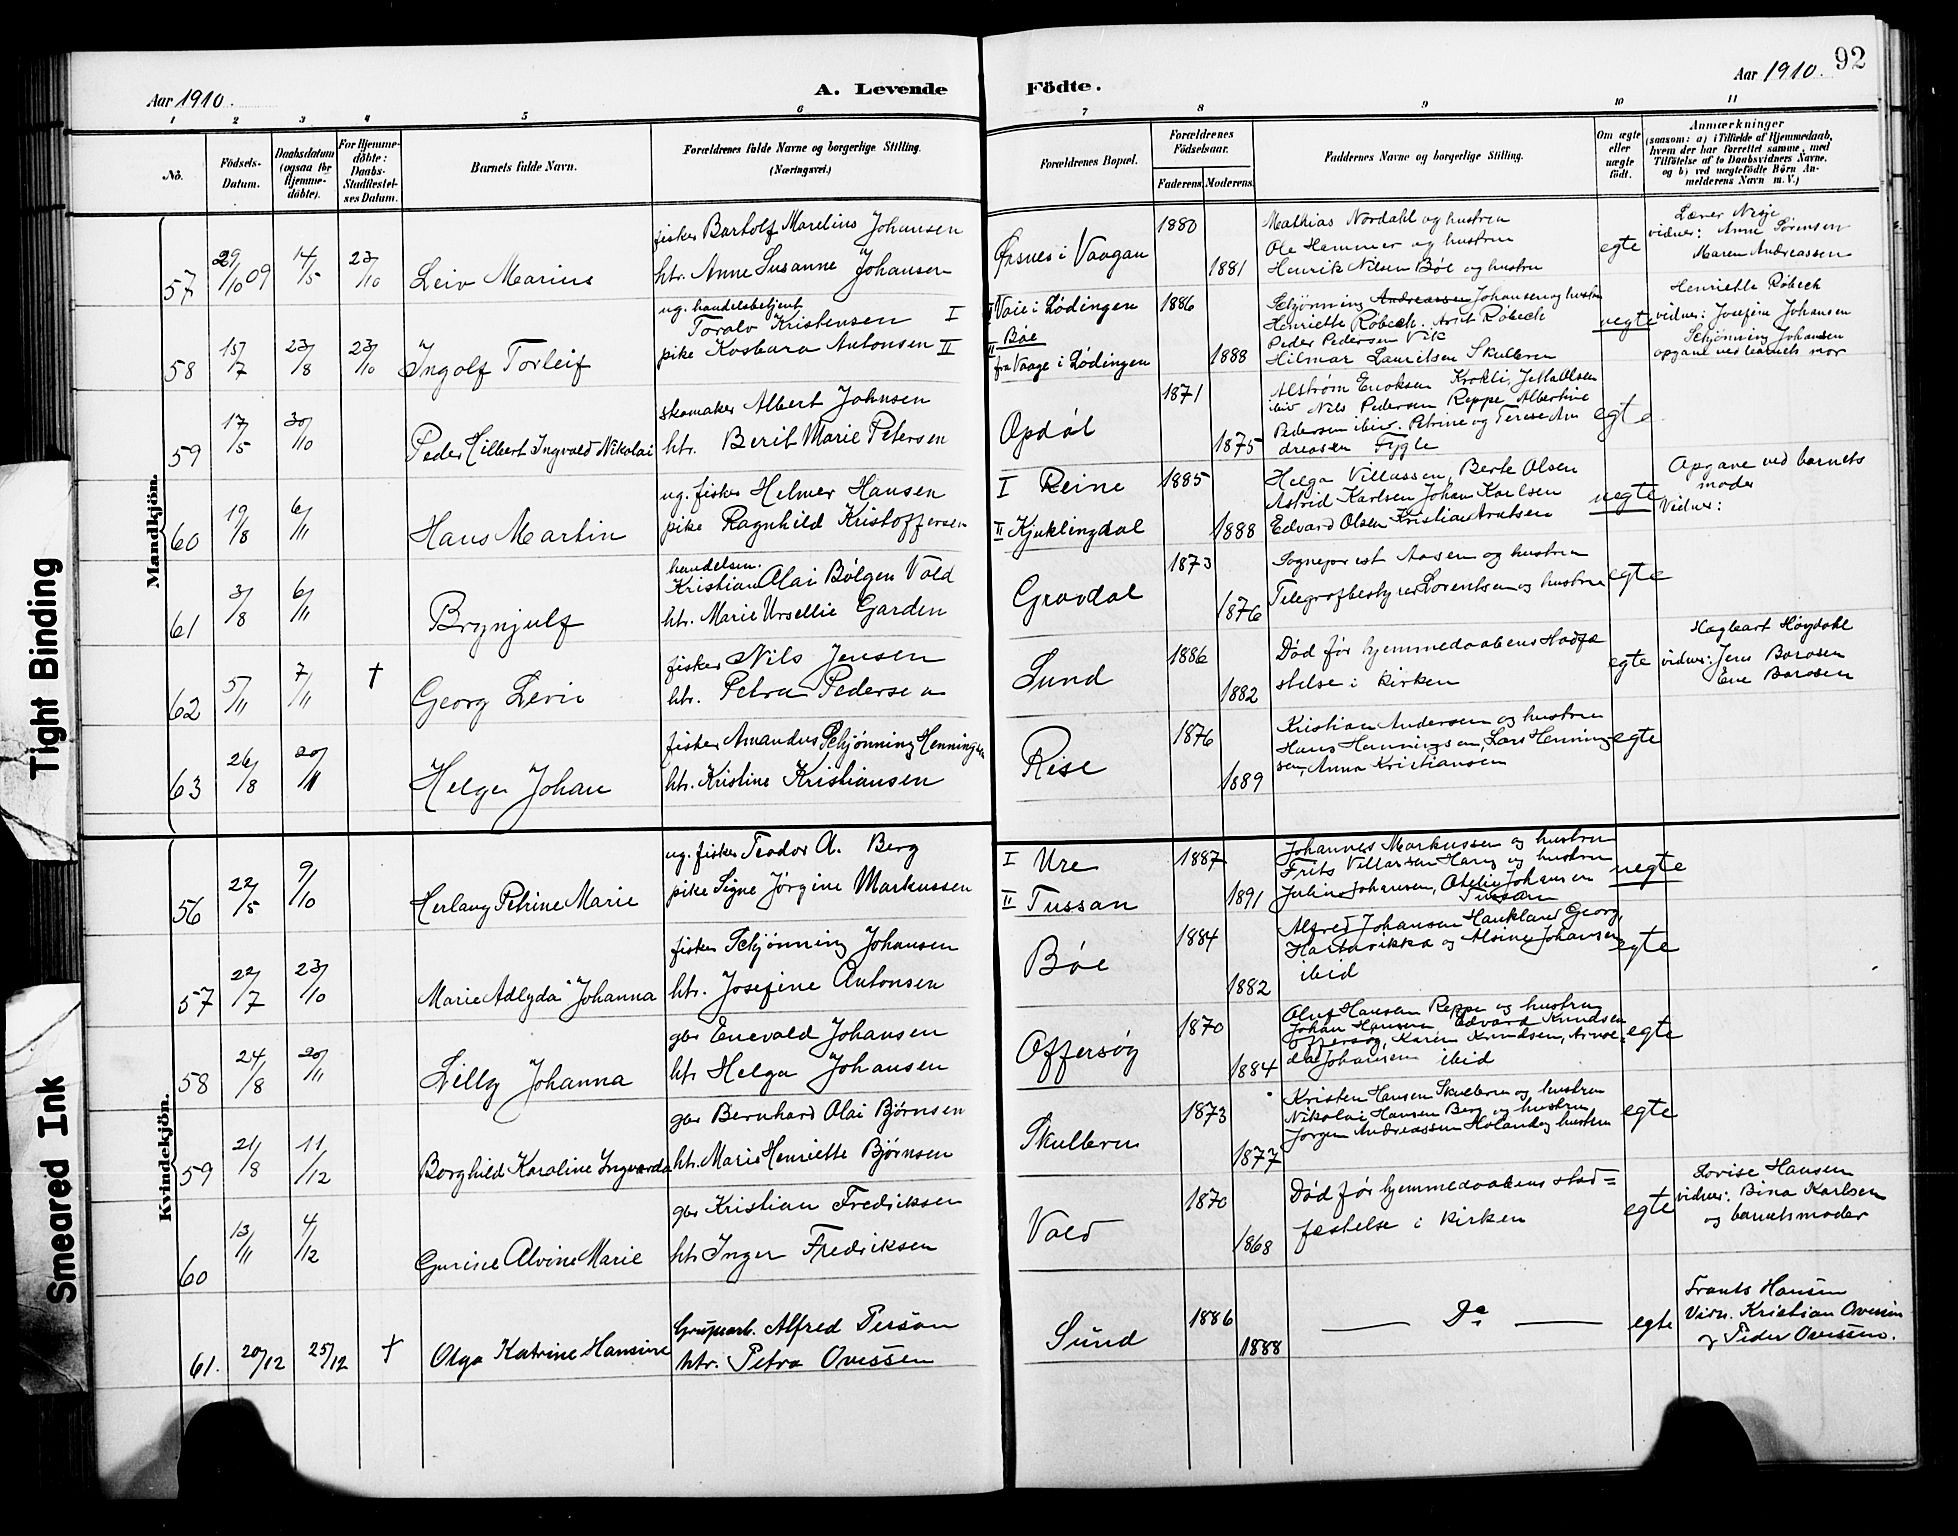 Aar 1910.
A. Levende
Födte.
Aar 1910.
92
1 2 3 4 5 6 7 8 9 10 11
No.
Födsels-Datum.
Daabsdatum (ogsaa for Hjemmedöbte).
For Hjemmedöbte: Daabs-Stadfæstelses Datum.
Barnets fulde Navn.
Forældrenes fulde Navne og borgerlige Stilling.
(Næringsvei.)
Forældrenes Bopæl.
Forældrenes Födselsaar.
Faderens. Moderens.
Faddernes Navne og borgerlige Stilling.
Om ægte eller uægte födt.
Anmærkninger
(saasom: a) i Tilfælde af Hjemmedaab, hvem der har forrettet samme, med Tilföielse af to Daabsvidners Navne, og b) ved uægtefödte Börn Anmelderens Navn m. V.)
Mandkjön.
57 29/10 09 14/5 23/10 Leiv Marius
fisker Bartolf Marelius Johansen
htr. Anne Susanne Johansen
Ørsnes i Vaagan 1880 1881
Mathias Nordahl og hustru
Ole Hammer og hustru
Henrik Nilsen Bøe og hustru
egte
Lærer Nesje
vidner: Anne Sørensen
Maren Andreassen
58 15/7 23/8 23/10 Ingolf Torleif
ug. handelsbetjent
Toralv Kristensen I
pike Kosbara Antonsen II
I Vaie i Lødingen
II Bøe
fra Vaage i Lødingen
1886 1888
Schjønning Andreassen Johansen og hustru
Henriette Røbeck. Arnt Røbeck
Peder Pedersen Vik
Hilmar Lauritsen Skulbru
uegte
Henriette Røbeck
vidner: Josefine Johansen
Schjønning Johansen
opgave ved barnets mor
59 17/5 30/10 Peder Hilbert Ingvald Nikolai
skomaker Albert Johnsen
htr. Berit Marie Petersen
Opdøl 1871 1875
Alstrøm Enoksen Krokli,
ibid Nils Pedersen Reppe Albertine
Pedersen ibid. Petrine og Terese An
dreasen Fygle
egte
60 19/8 6/11 Hans Martin
ug. fisker Helmer Hansen
pike Ragnhild Kristoffersen
I Reine
II Kjuklingdal
1885 1888
Helga Villassen, Berte Olsen
Astrid Karlsen Johan Karlsen
Edvard Olsen Kristian Arntsen
uegte
Opgave ved barnets
moder
Vidner:
61 3/8 6/11 Brynjulf
handelsm.
Kristian Olai Bølgen Vold
htr. Marie Ursellie Garden
Gravdal 1873 1876
Sogneprest Aasen og hustru
Telegrafbestyrer Lorentsen og hustru
egte
62 5/11 7/11 † Georg Levi
fisker Nils Jensen
htr. Petra Pedersen
Sund 1886 1882
Død før hjemmedaabens stadfæ
stelse i kirken
egte
Hagbart Høydahl
vidner: Jens Barosen
Ene Barosen
63 26/8 20/11 Helge Johan
fisker Amandus Schjønning Henningsen
htr. Kristine Kristiansen
Rise 1876 1889
Kristian Andersen og hustru
Hans Henningsen, Lars Henning
sen, Anna Kristiansen
egte
Kvindekjön.
56 22/5 9/10 Herlaug Petrine Marie
ug. fisker Teodor A. Berg
pike Signe Jørgine Markussen
I Ure
II Tussan
1887 1891
Johannes Markussen og hustru
Frits Villassen Haug og hustru
Julius Johansen, Otelie Johansen
Tussan
uegte
57 22/7 23/10 Marie Adlyda Johanna
fisker Schjønning Johansen
htr. Josefine Antonsen
Bøe 1884 1882
Alfred Johansen Haukland Georg
og Alvine Johansen
ibid
egte
58 24/8 20/11 Lilly Johanna
gbr Enevald Johansen
htr Helga Johansen
Offersøy 1870 1884
Oluf Hansen Reppe og hustru
Johan Hansen, Edvard Knudsen
Offersøy, Karen Knudsen, Arnol
da Johansen ibid
egte
59 21/8 11/12 Borghild Karoline Ingvarda
gbr Bernhard Olai Bjørnsen
htr. Marie Henriette Bjørnsen
Skulbru 1873 1877
Kristen Hansen Skulbru og hustru
Nikolai Hansen Berg og hustru
Jørgen Andreassen Holand og hustru
egte
60 13/11 4/12 Gurine Alvine Marie
gbr Kristian Fredriksen
htr Inger Fredriksen
Vold 1870 1868
Død før hjemmedaabens stad=
festelse i kirken
egte
Lovise Hansen
vidner: Bina Karlsen
og barnets moder
61. 20/12 25/12 † Olga Katrine Hansine
Grubearb. Alfred Person
htr. Petra Ovessen
Sund 1886 1888
— Do —
egte
Frants Hansen
Vidn. Kristian Ovessen
og Peder Ovessen.
Tight Binding
Smeared Ink